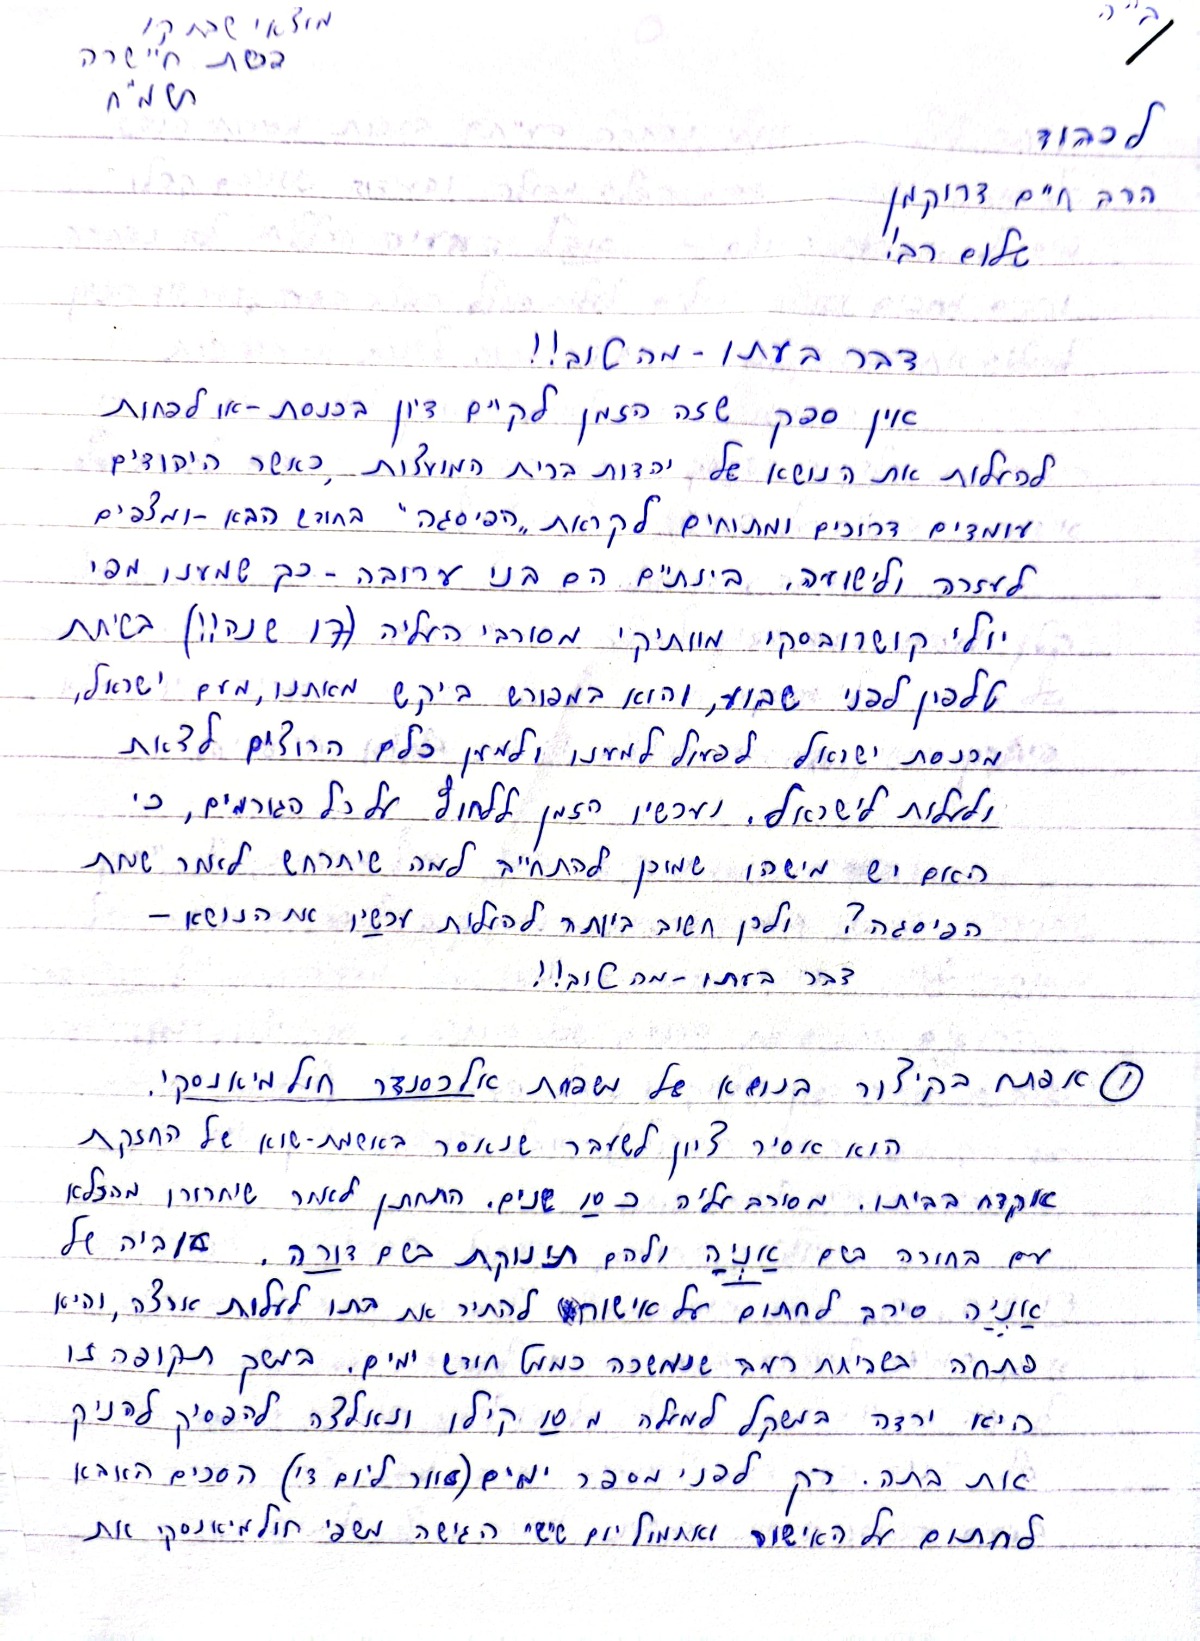 ב"ה
מוצאי שבת קו'
פרשת חיי שרה
תשמ"ח
לכבוד
הרב חיים דרוקמן
שלום רב!
דבר בעתו - מה טוב!!
אין ספק שזה הזמן לקיים דיון בכנסת - או לפחות
להעלות את הנושא של יהדות ברית המועצות, כאשר היהודים
עומדים דרוכים ומתוחים לקראת "הפיסגה" בחודש הבא - ומצפים
לעזרה ולישועה. בינתיים הם בני ערובה - כך שמענו מפי
יולי קושרובסקי מוותיקי מסורבי העליה (17 שנה!!) בשיחת
טלפון לפני שבוע, והוא במפורש ביקש מאתנו, מעם ישראל,
מכנסת ישראל לפעול למענו ולמען כלם הרוצים לצאת
ולעלות לישראל. ועכשיו הזמן ללחוץ על כל הגורמים, כי
האם יש מישהו שמוכן להתחייב למה שיתרחש לאחר שמחת
הפיסגה? ולכן חשוב ביותר להעלות עכשיו את הנושא –
דבר בעתו - מה טוב!!
(1) אפתח בקיצור בנושא של משפחת אלכסנדר חולמיאנסקי.
הוא אסיר ציון לשעבר שנאסר באשמת-שוא של החזקת
אוקדח בביתו. מסורב עליה כ 10 שנים. התחתן לאחר שיחרורו מהכלא
עם בחורה בשם אַנְיָה ולהם תינוקת בשם דורה. אביה של
אַנְיָה סירב לחתום על אישור להתיר את בתו לעלות ארצה, והיא
פתחה בשביתת רעב שנמשכה כמעט חודש ימים. במשך תקופה זו
היא ירדה במשקל למעלה מ 10 קילו ונאלצה להפסיק להניק
את בתה. רק לפני מספר ימים (אור ליום ד') הסכים האבא
לחתום על האישור ואתמול יום שישי הגישה משפ' חולמיאנסקי את